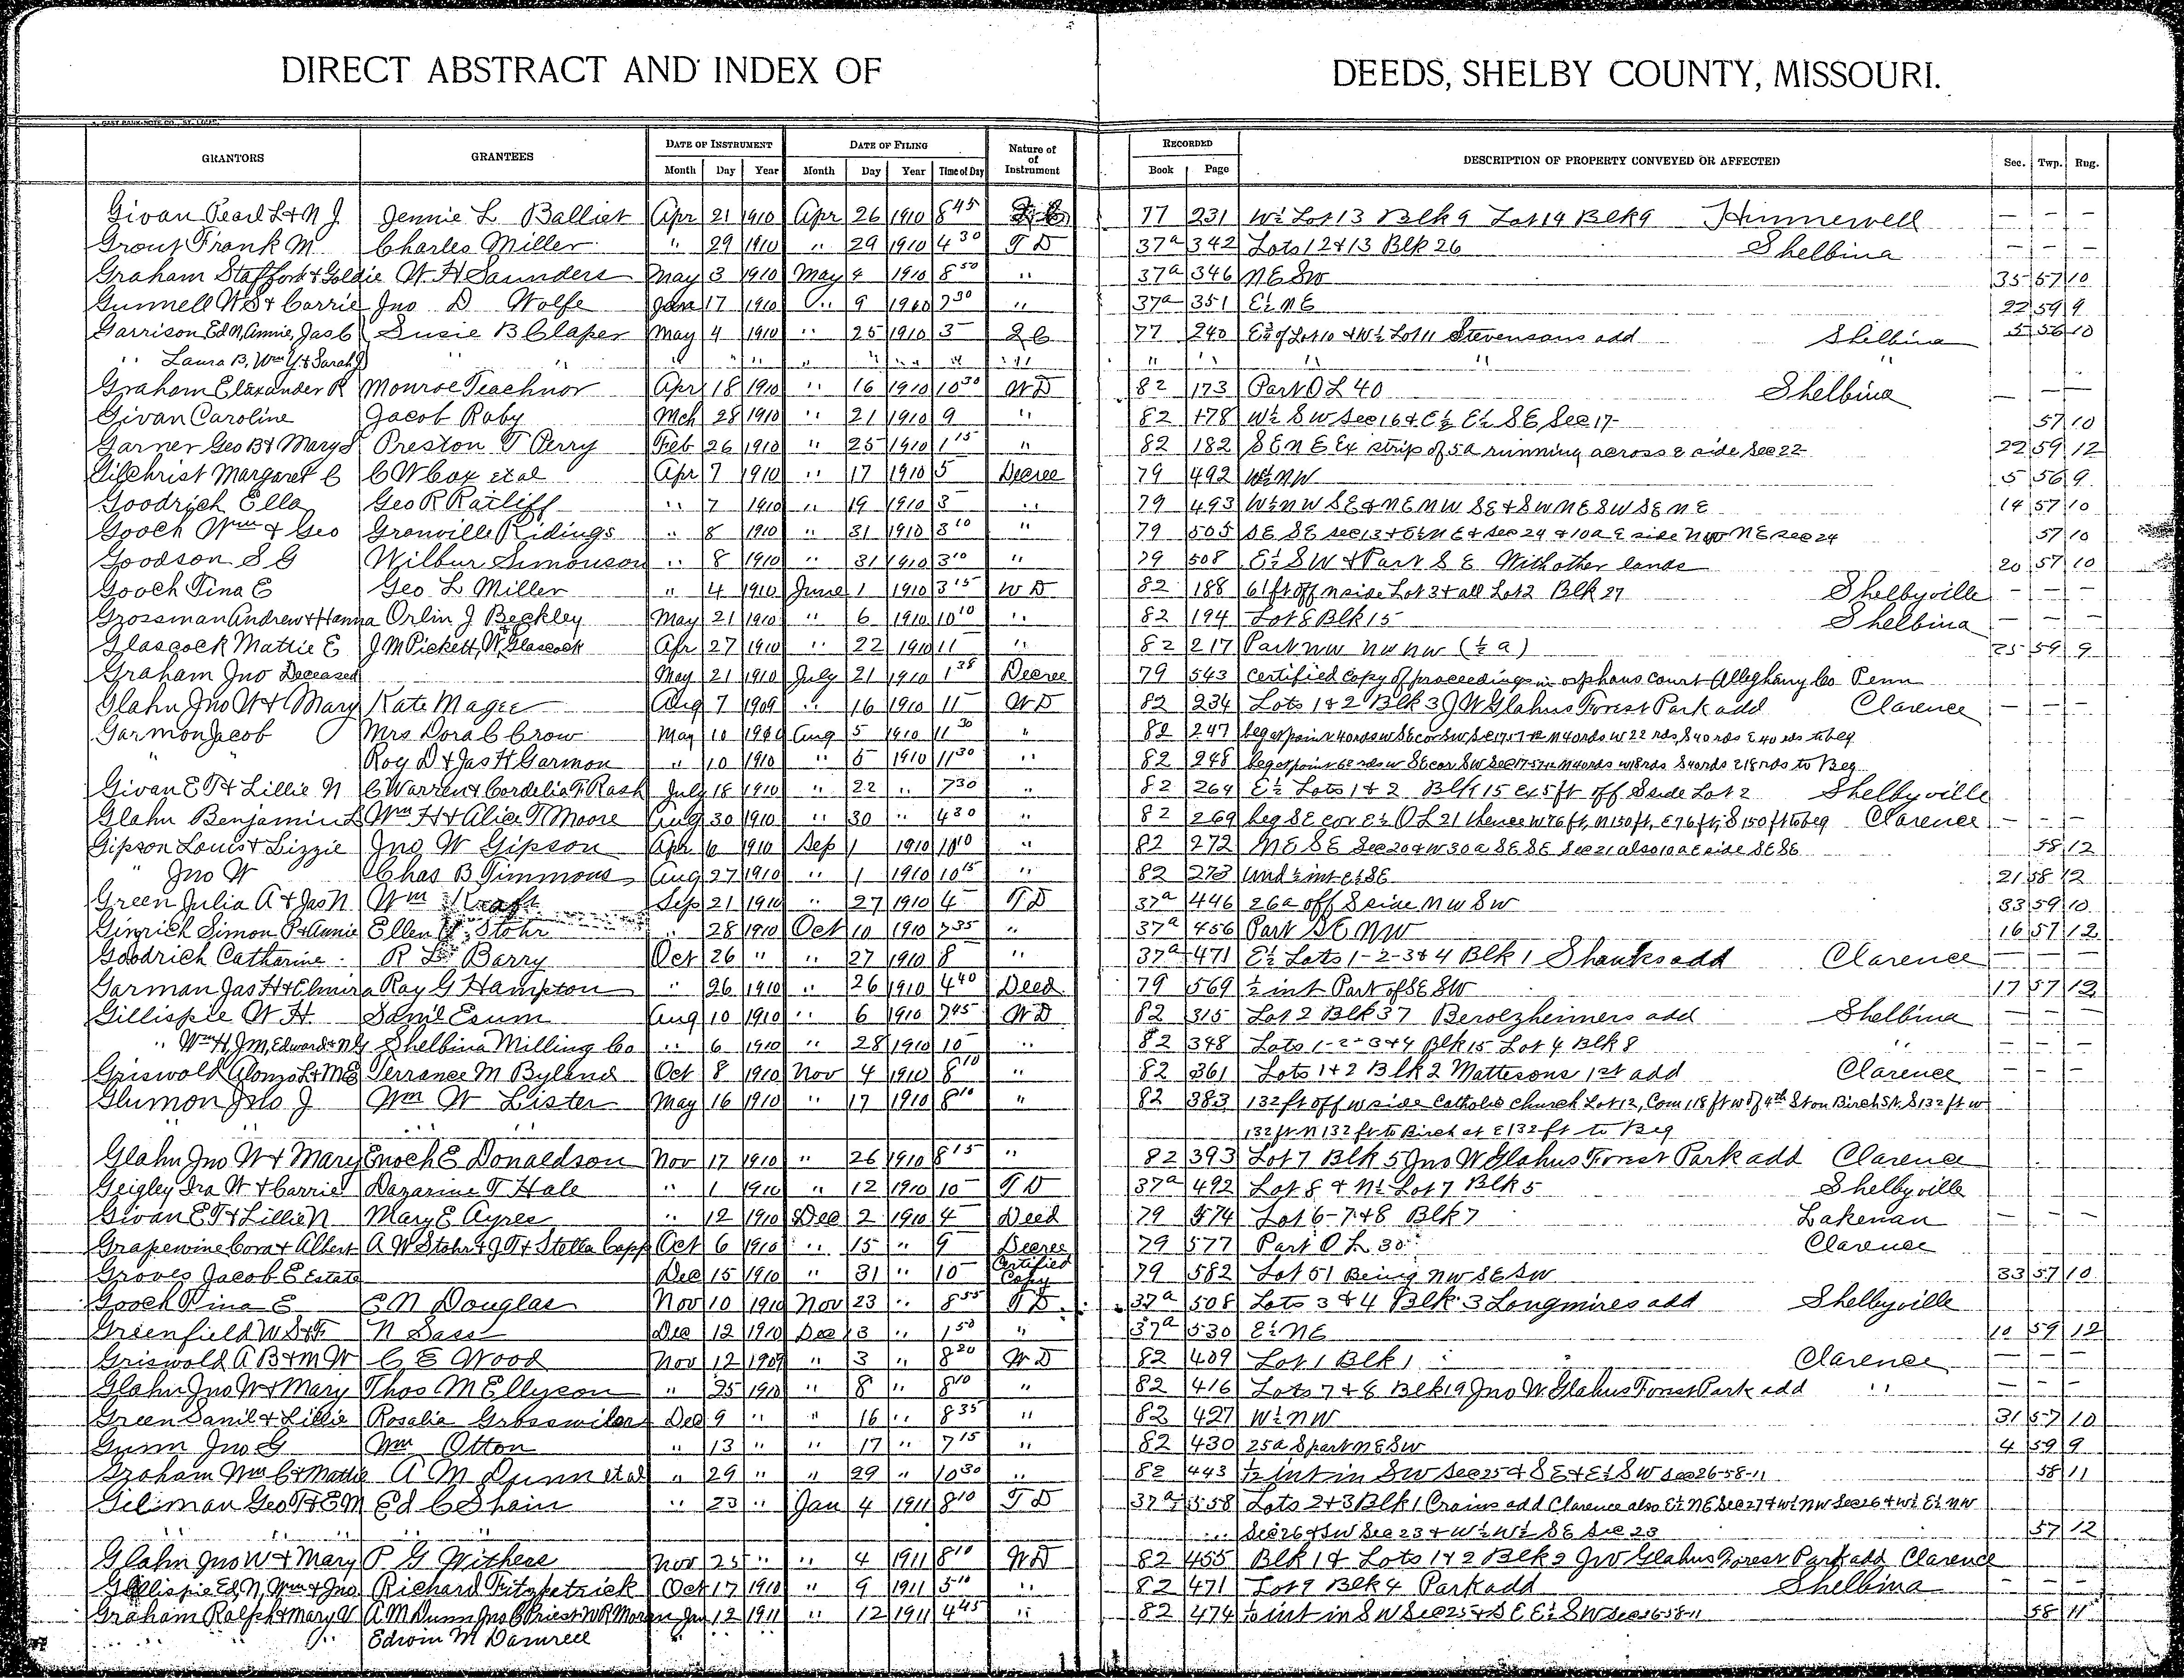 DIRECT ABSTRACT AND INDEX OF DEEDS, SHELBY COUNTY, MISSOURI.
GRANTORS GRANTEES DATE OF INSTRUMENT DATE OF FILING Nature of Instrument RECORDED DESCRIPTION OF PROPERTY CONVEYED OR AFFECTED Sec. Twp. Rng.
Month Day Year Month Day Year Time of Day Book Page
Givan Pearl L & N J Jennie L Balliet Apr 21 1910 Apr 26 1910 8 45 77 231 W½ Lot 13 Blk 9 Lot 14 Blk 9 Hunnewell — — —
Grout Frank M Charles Miller " 29 1910 " 29 1910 4 30 T D 37a 342 Lots 12 & 13 Blk 26 Shelbina — — —
Graham Stafford & Goldie W. H Saunders May 3 1910 May 4 1910 8 50 " 37a 346 NE SW 35 57 10
Gunnell W S & Carrie Jno D Wolfe 17 1910 " 9 1910 7 30 " 37a 351 E½ NE 22 59 9
Garrison Ed N, Annie, Jas C Susie B Claper May 4 1910 " 25 1910 3 Q C 77 240 of Lot 10 & W½ Lot 11 Stevensons add Shelbina 5 56 10
" Laura B, Wm Y. & Sarah J " " " " " " " " " " " " " " "
Graham Elaxander R Monroe Teachnor Apr 18 1910 " 16 1910 10 30 W D 82 173 Part O L 40 Shelbina — —
Givan Caroline Jacob Raby Mch 28 1910 " 21 1910 9 " 82 178 W½ SW Sec 16 & E½ E½ SE, Sec 17 57 10
Garner Geo B & Mary S Preston T Perry Feb 26 1910 " 25 1910 1 15 " 82 182 SE NE Ex strip of 5a running across E side Sec 22 22 59 12
Gilchrist Margaret C C W Cox et al Apr 7 1910 " 17 1910 5 Decree 79 492 W½ NW 5 56 9
Goodrich Ella Geo R Ratliff " 7 1910 " 19 1910 3 " 79 493 W½ NW SE & NE NW SE & SW NE SW SE NE 14 57 10
Gooch Wm & Geo Granville Ridings " 8 1910 " 31 1910 3 10 " 79 505 SE SE sec 13 & E½ NE & Sec 24 & 10a E side NW NE sec 24 57 10
Goodson S G Wilbur Simonson " 8 1910 " 31 1910 3 10 " 79 508 E½ SW & Part S E With other lands 20 57 10
Gooch Tina E Geo L Miller " 4 1910 June 1 1910 3 15 W D 82 188 61 ft off N side Lot 3 & all Lot 2 Blk 27 Shelbyville — — —
Grossman Andrew & Hanna Orlin J Beckley May 21 1910 " 6 1910 10 10 " 82 194 Lot 8 Blk 15 Shelbina — — —
Glascock Mattie E J M Pickett, W Glascock Apr 27 1910 " 22 1910 11 " 82 217 Part NW NW NW (½ a) 25 59 9
Graham Jno Deceased May 21 1910 July 21 1910 1 38 Decree 79 543 Certified copy of proceedings in orphans court Alleghany Co Penn
Glahn Jno W & Mary Kate Magee Aug 7 1909 " 16 1910 11 W D 82 234 Lots 1 & 2 Blk 3 J W Glahns Forest Park add Clarence — — —
Garmon Jacob Mrs Dora C Crow May 10 1910 Aug 5 1910 11 30 " 82 247 beg at point 40 rds w SE cor SW, Sec 17 57 12 N 40 rds w 22 rds, S 40 rds E 40 rds to beg
" Roy D & Jas H Garmon " 10 1910 " 5 1910 11 30 " 82 248 beg at point 62 rds w SE cor SW Sec 17-57-12 N 40 rds w 18 rds S 40 rds E 18 rds to Beg
Givan E T & Lillie N C Warren & Cordelia F. Rash July 18 1910 " 22 " 7 30 " 82 264 E½ Lots 1 & 2 Blk 15 Ex 5 ft off S side Lot 2 Shelbyville
Glahn Benjamin L Wm H & Alice T Moore Aug 30 1910 " 30 " 4 30 " 82 269 beg SE cor E½ O L 21 thence W 76 ft, N 150 ft, E 76 ft, S 150 ft to beg Clarence — — —
Gipson Louis & Lizzie Jno W Gipson Apr 6 1910 Sep 1 1910 10 10 " 82 272 NE SE Sec 20 & W 30 a SE SE Sec 21 also 10 a E side SE SE 58 12
" Jno W Chas B Timmons Aug 27 1910 " 1 1910 10 15 " 82 273 Und ½ int E½ SE 21 58 12
Green Julia A & Jas N Wm Kraft Sep 21 1910 " 27 1910 4 T D 37a 446 26a off S side NW SW 33 59 10
Ginrich Simon P & Annie Ellen Stohr " 28 1910 Oct 10 1910 7 35 " 37a 456 Part SE NW 16 57 12
Goodrich Catharine R L Barry Oct 26 " " 27 1910 8 " 37a 471 E½ Lots 1-2-3 & 4 Blk 1 Shanks add Clarence — — —
Garman Jas H & Elmira Ray G Hampton " 26 1910 " 26 1910 4 40 Deed 79 569 ½ int Part of SE SW 17 57 12
Gillispie W H. Saml Esum Aug 10 1910 " 6 1910 7 45 W D 82 315 Lot 2 Blk 37 Berolzheimers add Shelbina — — —
" Wm H, J M, Edward & N G Shelbina Milling Co " 6 1910 " 28 1910 10 " 82 348 Lots 1-2-3 & 4 Blk 15 Lot 4 Blk 8 " — — —
Griswold Alonzo L & M E Terrance M Byland Oct 8 1910 Nov 4 1910 8 10 " 82 361 Lots 1 & 2 Blk 2 Mattesons 1st add Clarence — — —
Glumon Jno J Wm W Lister May 16 1910 " 17 1910 8 10 " 82 383 132 ft off W side Catholic church Lot 12, Com 118 ft W of 4th St on Birch St, S 132 ft W
" " " 132 ft N 132 ft to Birch st E 132 ft to Beg
Glahn Jno W & Mary Enoch E Donaldson Nov 17 1910 " 26 1910 8 15 " 82 393 Lot 7 Blk 5 Jno W Glahns Forest Park add Clarence
Geigley Ira W & Carrie Dazarine T Hale " 1 1910 " 12 1910 10 T D 37a 492 Lot 8 & N½ Lot 7 Blk 5 Shelbyville
Givan E T & Lillie N Mary E Ayres " 12 1910 Dec 2 1910 4 Deed 79 574 Lot 6-7 & 8 Blk 7 Lakenan — — —
Grapewine Cora & Albert A W Stohr & J T & Stella Capp Oct 6 1910 " 15 " 9 Decree 79 577 Part O L 30 Clarence
Groves Jacob E Estate Dec 15 1910 " 31 " 10 Certified Copy 79 582 Lot 51 Being NW SE SW 33 57 10
Gooch Tina E E N Douglas Nov 10 1910 Nov 23 " 8 55 T D 37a 508 Lots 3 & 4 Blk 3 Longmires add Shelbyville
Greenfield W S & F N Sass Dec 12 1910 Dec 13 " 1 50 " 37a 530 E½ NE 10 59 12
Griswold A B & M W C E Wood Nov 12 1909 " 3 " 8 20 W D 82 409 Lot 1 Blk 1 Clarence — — —
Glahn Jno W & Mary Thos M Ellyson " 25 1910 " 8 " 8 10 " 82 416 Lots 7 & 8 Blk 19 Jno W. Glahns Forest Park add " — — —
Green Saml & Lillie Rosalia Grosswiler Dec 9 " " 16 " 8 35 " 82 427 W½ NW 31 57 10
Gunn Jno G Wm Otton " 13 " " 17 " 7 15 " 82 430 25a S part NE SW 4 59 9
Graham Wm C & Mattie A M Dunn et al " 29 " " 29 " 10 30 " 82 443 int in SW Sec 25 & SE & E½ SW Sec 26-58-11 58 11
Gilman Geo T & E M Ed C Shain " 23 " Jan 4 1911 8 10 T D 37a 558 Lots 2 & 3 Blk 1 Crains add Clarence also E½ NE Sec 27 & W½ NW Sec 26 & W½ E½ NW
" " " " Sec 26 & SW Sec 23 & W½ W½ SE Sec 23 57 12
Glahn Jno W & Mary P G Withers Nov 25 " " 4 1911 8 10 W D 82 455 Blk 1 & Lots 1 & 2 Blk 2 J W Glahns Forest Park add Clarence
Gillispie Ed, N, Wm & Jno Richard Fitzpatrick Oct 17 1910 " 9 1911 5 10 " 82 471 Lot 9 Blk 4 Park add Shelbina — —
Graham Ralph & Mary V A M Dunn Jno C Priest W R Moran Jan 12 1911 " 12 1911 4 45 " 82 474 int in SW Sec 25 & SE E½ SW Sec 26-58-11 58 11
" " " Edwin M Damrell " "